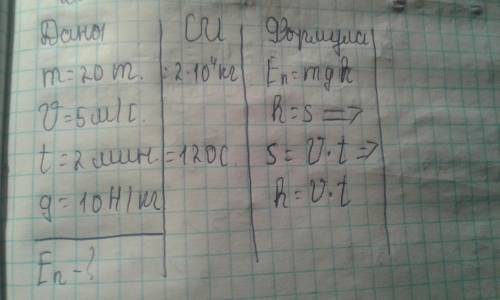 Дано СИ Формула
m=20 т. =2·10⁴кг Eп=mgh
V=5м/с. h=s =>
t=2 мин =120с. s=V·t=>
g=10Н/кг h=V·t
Eп-?